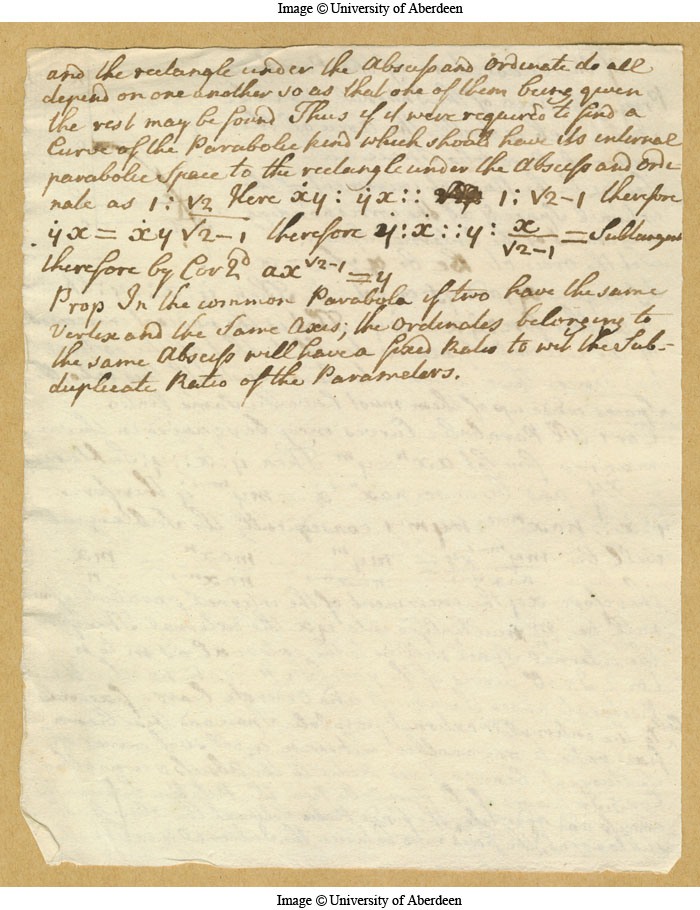 Image © University of Aberdeen
and the rectangle under the Absciss and Ordinate do all
depend on one another so as that one of them being given
the rest may be found Thus if it were required to find a
Curve of the Parabolic kind which should have its internal
parabolic Space to the rectangle under the Absciss and Ordi-
nate as 1 : √2 Here ẋy : ẏx :: 1 : √2-1 therefore
ẏx = ẋy √2-1 therefore ẏ : ẋ :: y : x/√2-1 = Subtangent
therefore by Cor 2d ax^√2-1 = y
Prop In the common Parabola if two have the same
Vertex and the Same Axis; the Ordinates belonging to
the same Absciss will have a fixed Ratio to wit the Sub-
duplicate Ratio of the Parameters.
Image © University of Aberdeen